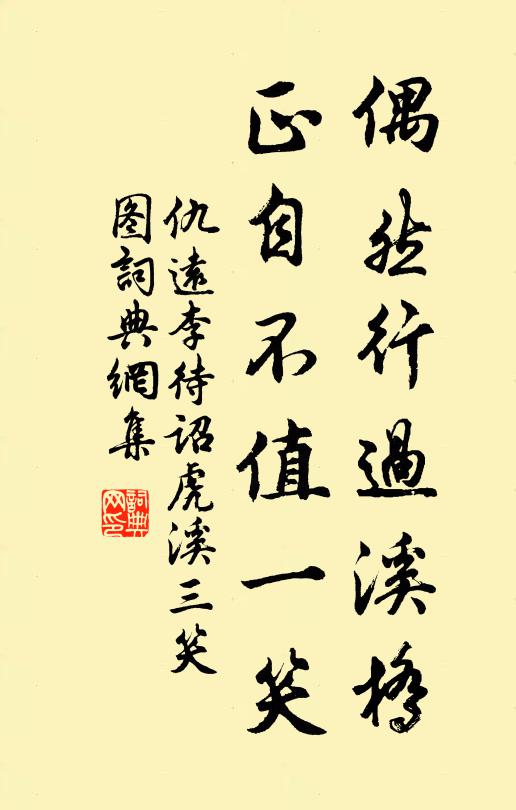 偶然行過溪橋
正自不值一笑
仇遠李待詔虎溪三笑
图詞典網集
詞典網印